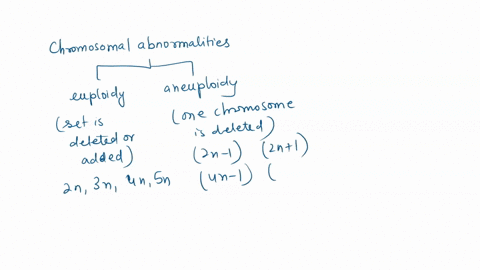 Chromosomal abnormalities
euploidy aneuploidy
(set is deleted or added)
(one chromosome is deleted)
(2n-1) (2n+1)
2n, 3n, 4n, 5n (4n-1) (